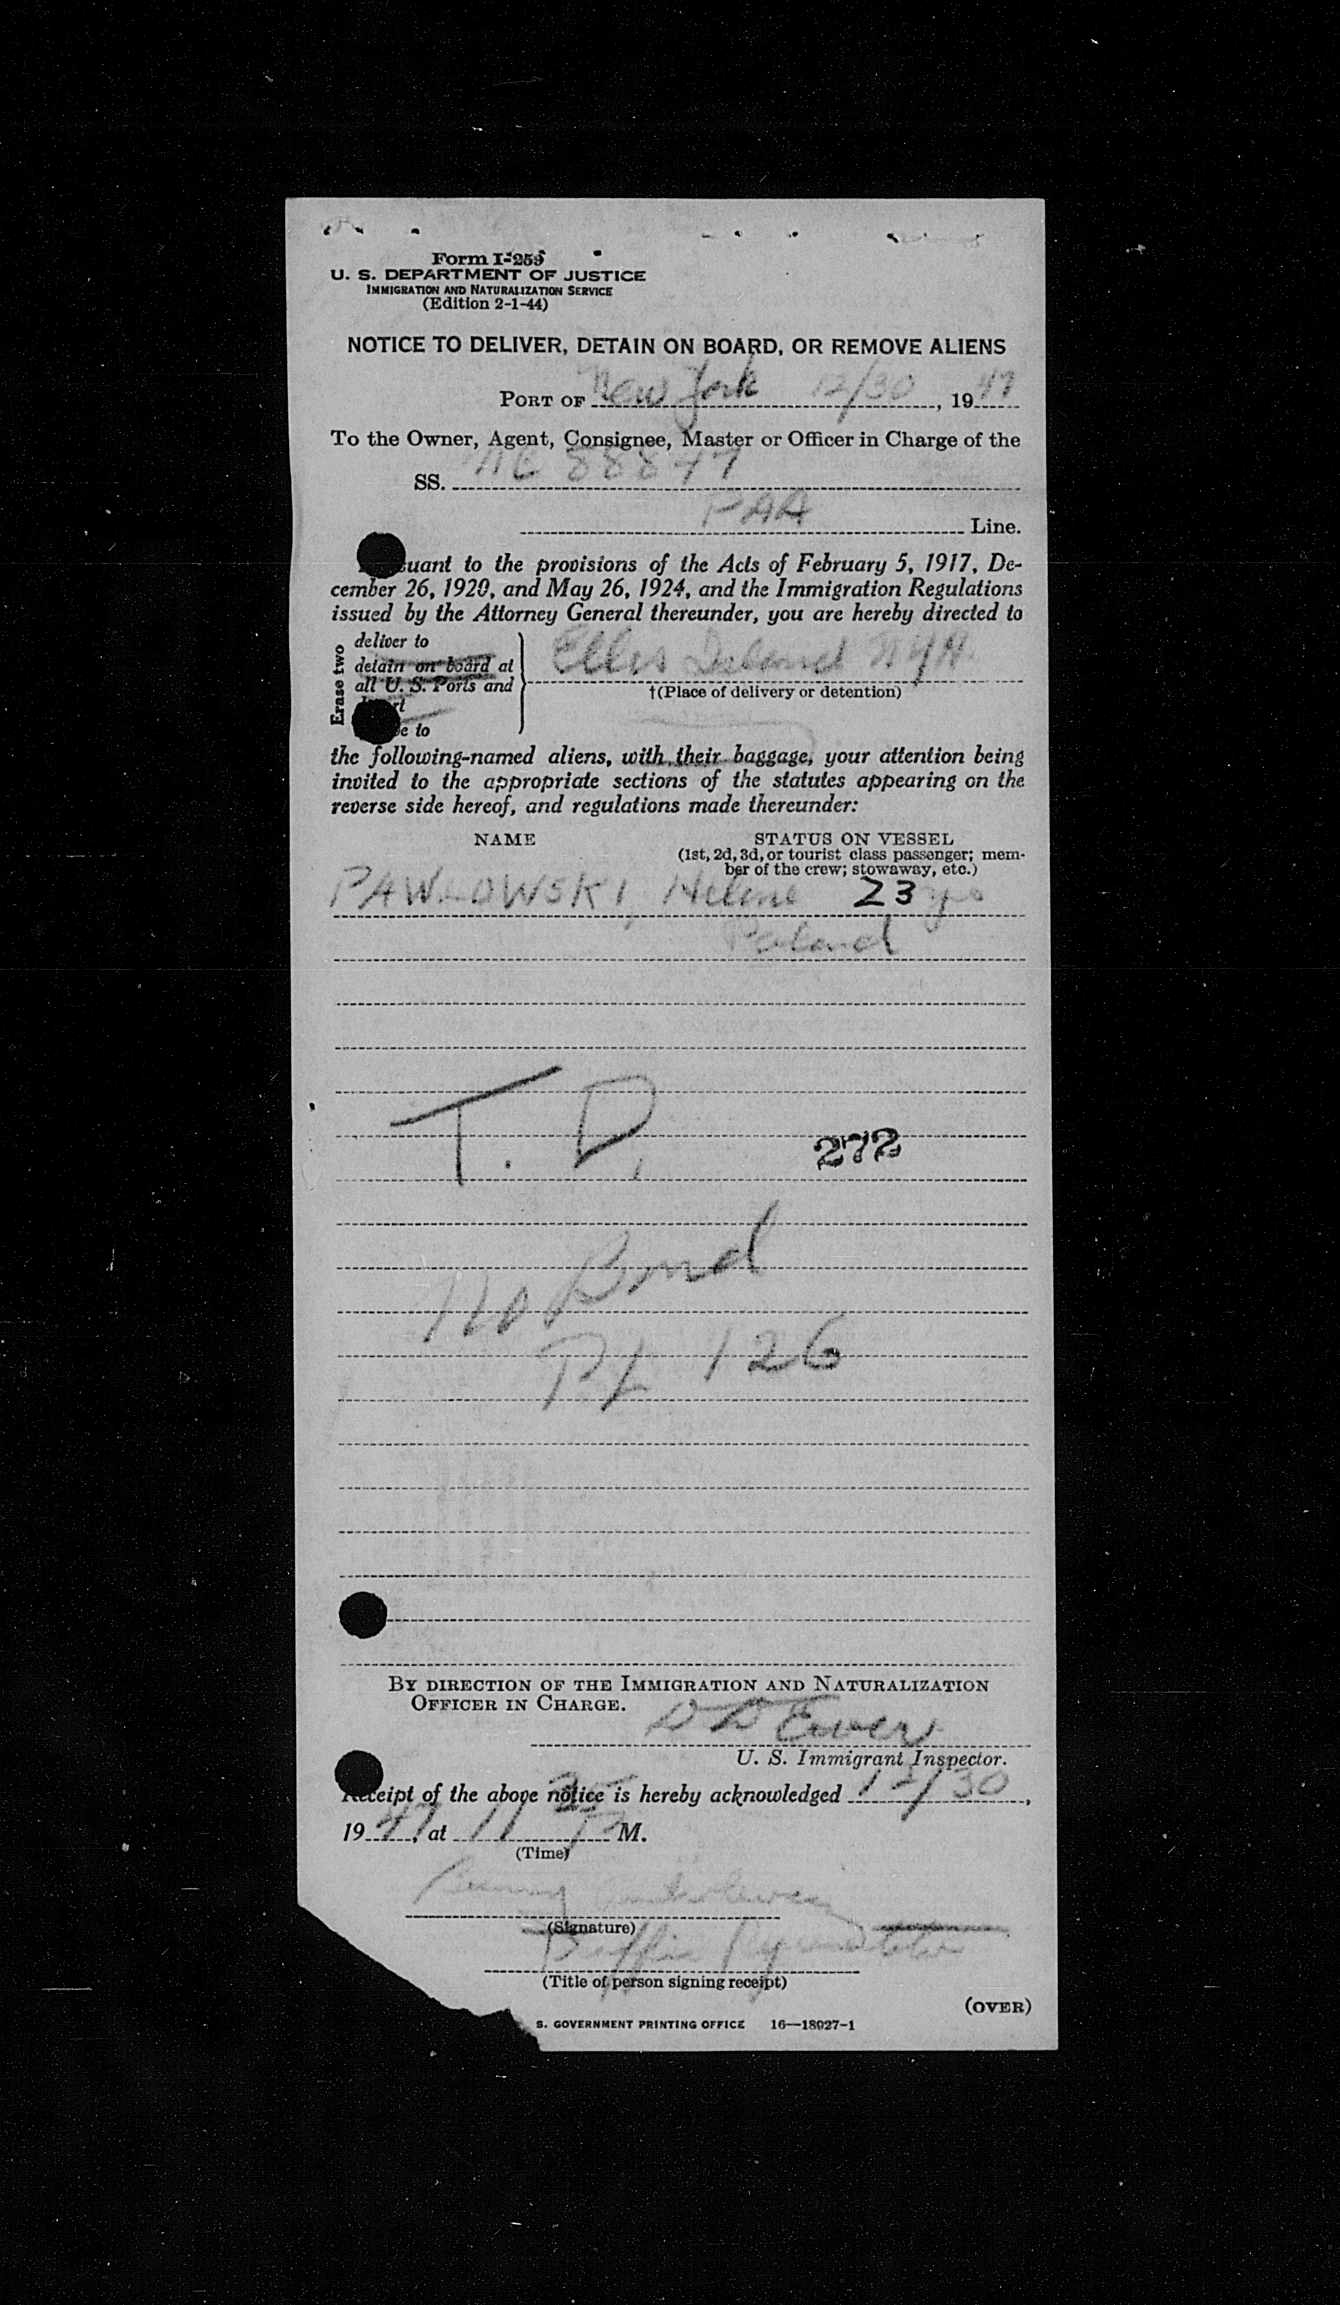 Form I-259
U. S. DEPARTMENT OF JUSTICE
IMMIGRATION AND NATURALIZATION SERVICE
(Edition 2-1-44)
NOTICE TO DELIVER, DETAIN ON BOARD, OR REMOVE ALIENS
PORT OF New York 12/30, 1947
To the Owner, Agent, Consignee, Master or Officer in Charge of the
SS. NC 88847
PAA Line.
uant to the provisions of the Acts of February 5, 1917, De-
cember 26, 1920, and May 26, 1924, and the Immigration Regulations
issued by the Attorney General thereunder, you are hereby directed to
Erase two
deliver to
detain on board at
all U. S. Ports and
e to
Ellis Island NYH.
†(Place of delivery or detention)
the following-named aliens, with their baggage, your attention being
invited to the appropriate sections of the statutes appearing on the
reverse side hereof, and regulations made thereunder:
NAME STATUS ON VESSEL
(1st, 2d, 3d, or tourist class passenger; mem-
ber of the crew; stowaway, etc.)
PAWLOWSKI, Helene 23 yrs
Poland
T. D.
272
No Bond
PL 126
BY DIRECTION OF THE IMMIGRATION AND NATURALIZATION
OFFICER IN CHARGE.
U. S. Immigrant Inspector.
Receipt of the above notice is hereby acknowledged 12/30,
1947, at 11 35 M.
(Time)
(Signature)
(Title of person signing receipt)
(OVER)
S. GOVERNMENT PRINTING OFFICE 16—18027-1